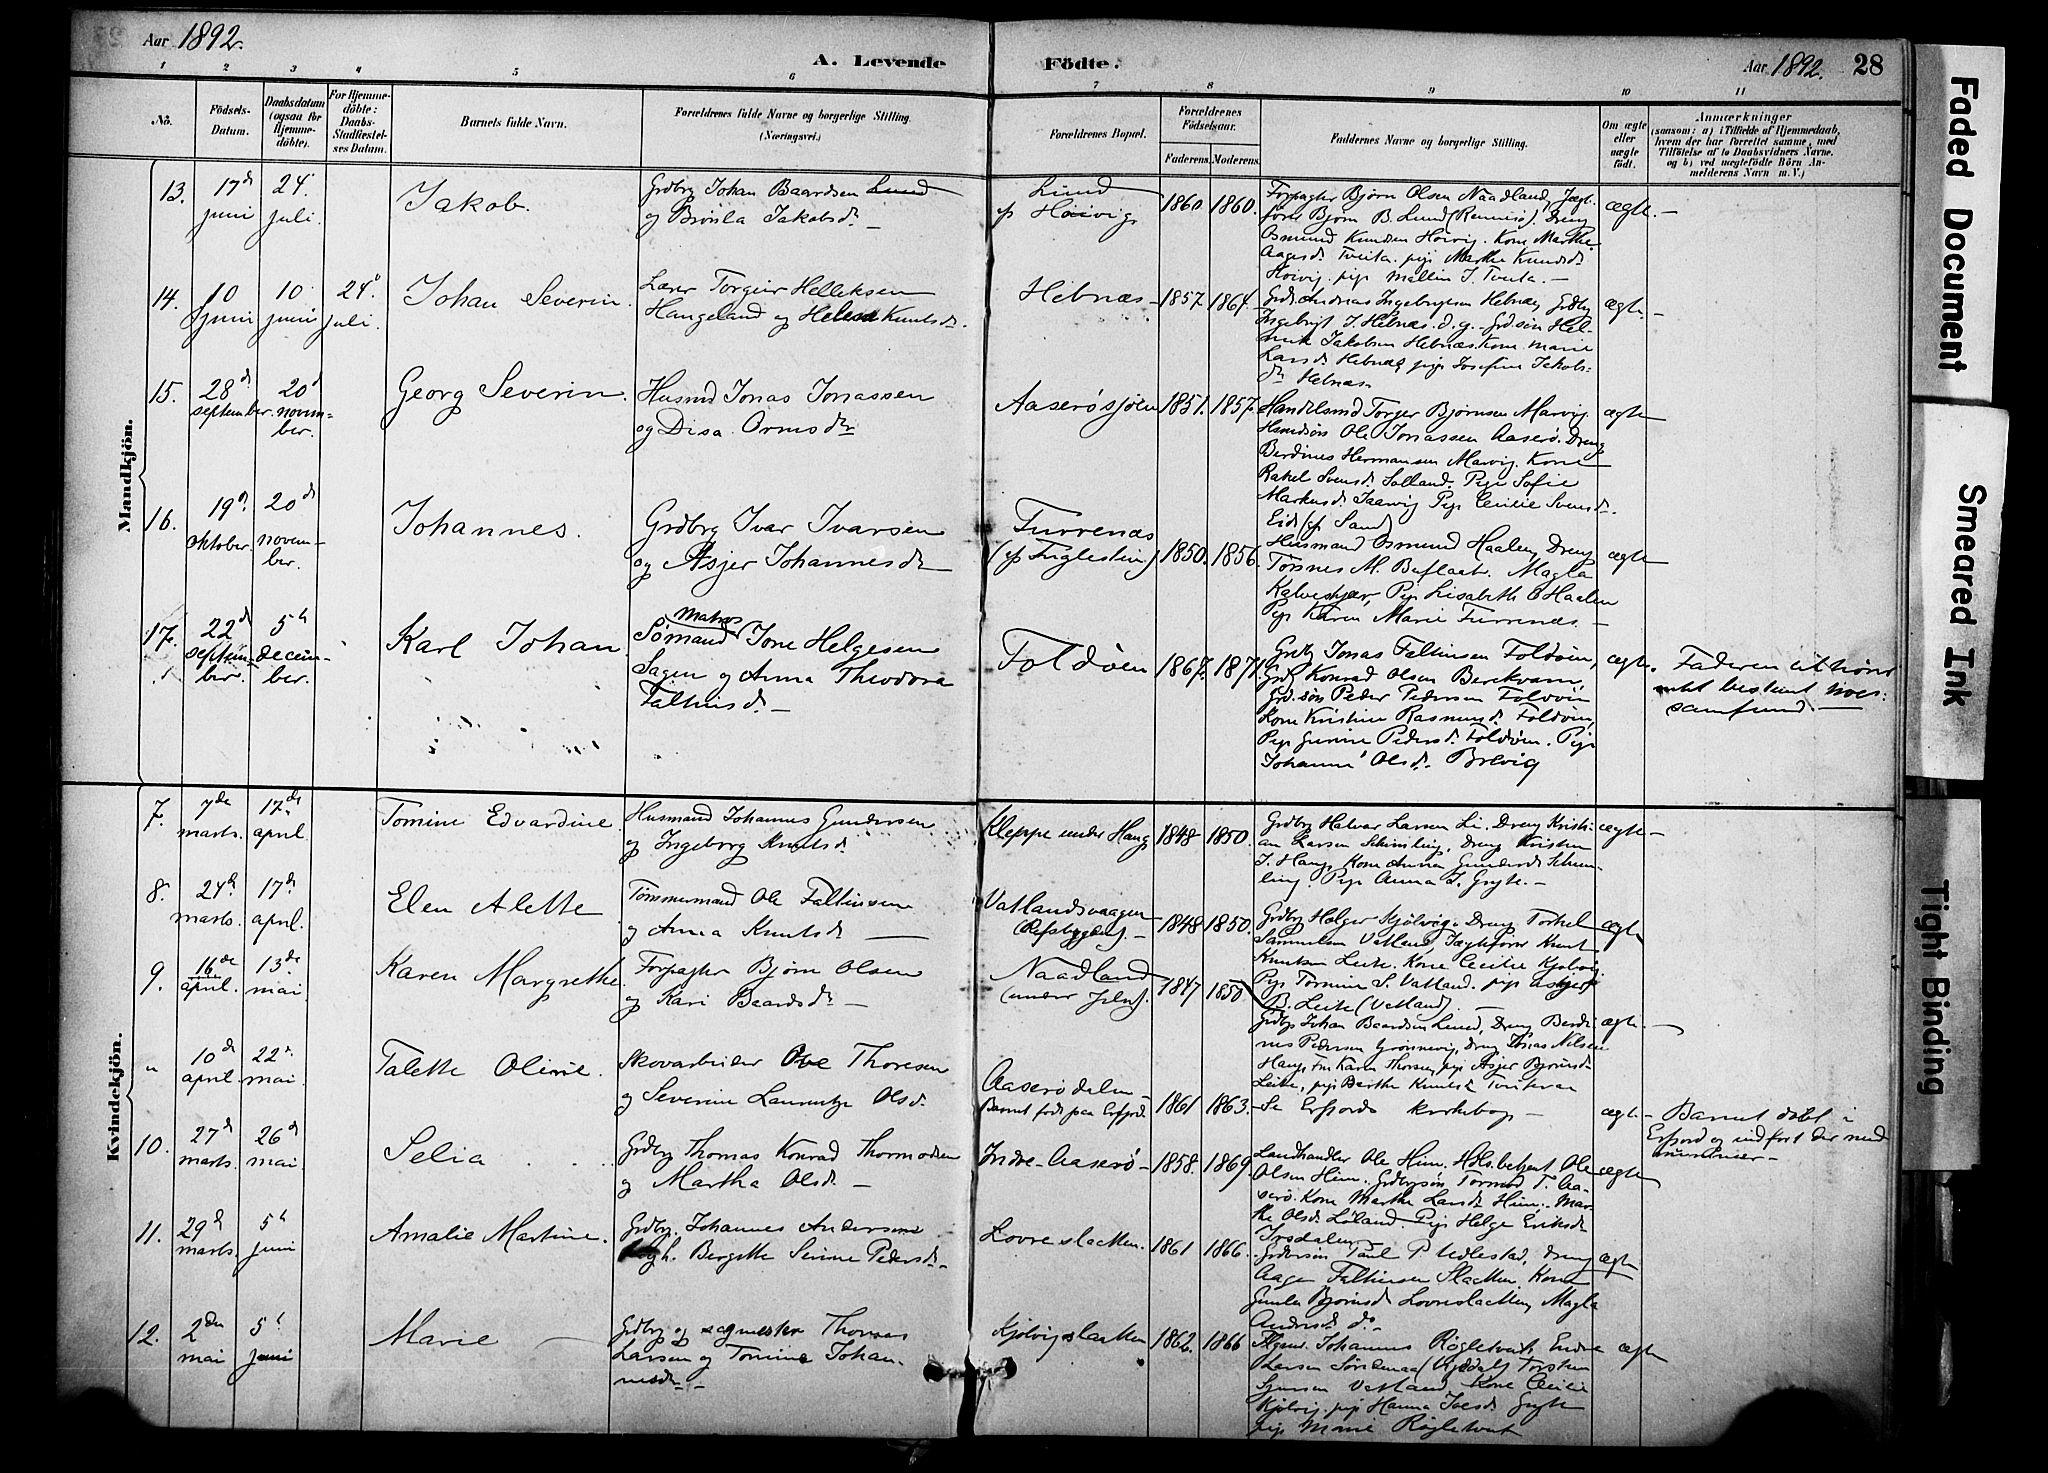 Aar 1892.
A. Levende Födte.
Aar 1892. 28
1 2 3 4 5 6 7 8 9 10 11
No.
Födsels-Datum.
Daabsdatum (ogsaa for Hjemmedöbte).
For Hjemmedöbte: Daabs-Stadfæstelses Datum.
Barnets fulde Navn.
Forældrenes fulde Navne og borgerlige Stilling. (Næringsvei.)
Forældrenes Bopæl.
Forældrenes Födselsaar.
Faderens. Moderens.
Faddernes Navne og borgerlige Stilling.
Om ægte eller uægte födt.
Anmærkninger
(saasom: a) i Tilfælde af Hjemmedaab,
hvem der har forrettet samme, med
Tilföielse af to Daabsvidners Navne.
og b) ved uægtefödte Börn Anmelderens Navn m. V.)
Mandkjön.
13. 17d juni 24. juli. Jakob. Grdbr Johan Baardsen Lund
og Brösla Jakobsdr —
Lund
1860 1860.
Forpagter Björn Olsen Naadland, Jægt-
före Björn B. Lund (Rennesö). Dreng
Osmund Knudsen Hoivig. Kone Marthe
Aagesdr Tveita. pige Marthe Knudsdr
Hoivig, pige Mallin J. Tveita. —
ægte. —
14. 10 juni 10 juni 24. juli. Johan Severin. Lærer Torgeir Helleksen
Haugeland og Helene Knutsdr.
Hebnæs — 1857. 1864.
Ingebrigt J. Hebnæs. d. y. Grdsön Hel-
Jakobsen Hebnæs. Kone Marie
Larsdr Hebnæs, pige Josefine Jakobs-
dr Hebnæs
ægte. —
15. 28d september. 20d november. Georg Severin. Husmd Jonas Jonassen
og Disa Ormsdr
Aaserösjöen 1851. 1857.
Handelsmd Torger Björnsen Marvig
Husmdsön Ole Jonassen Aaserö. Dreng
Berdines Hermansen Marvig. Kone
Rakel Svensdr Solland. Pige Sofie
Markusdr Saarvig Pige Cecilie Svensdr.
Eide (p Sand)
ægte
16. 19d oktober. 20d november. Johannes. Grdbrg Ivar Ivarsen
og Asjer Johannesdr
Furrenæs
(p Fuglestein) 1850. 1856.
Husmand Osmund Haalen, Dreng
Magla
Kalveskjær, Pige Lisabeth O Haalen
Pige Karen Marie Furrenæs. —
ægte
17. 22d september. 5th december. Karl Johan Matros
Sömand Jone Helgesen
Sagen og Anna Theodora
Faltinsdr. —
Foldöen 1867. 1871.
Grdbr Jonas Faltinsen Foldöen,
Grdbr Konrad Olsen Berekvam,
Grdsön Peder Pedersen Foldöen
Kone Kristine Rasmusdr Foldöen,
Pige Gurine Pedersdr. Foldöen. Pige
Johanne Olsdr. Brevig
ægte.
Faderen tilhörer
intet bestemt troes-
samfund. —
Kvindekjön.
7. 7de marts. 17de april. Tomine Edvardine. Husmand Johannes Gundersen
og Ingeborg Knutsdr.
Kleppe under Haug 1848 1850.
Grdbrg Halvar Larsen Li, Dreng Kristi-
an Larsen Skimling, Dreng Kristen
J. Haug, Kone Anna Gundersdr Skim-
ling. Pige Anna J. Gryte. —
ægte —
8. 24d marts. 17de april. Elen Alette Tömmermand Ole Faltinsen
og Anna Knutsdr —
Vatlandsvaagen
1848 1850.
Grdbrg Holger Kjölvig. Dreng Torkel
Samuelsen Vatland, Jægteförer Knut
Knutsen Leite. Kone Cecilie Kjölvig.
Pige Tomine S. Vatland. pige Asgjer
B. Leite (Vatland). —
ægte
9. 16de april. 13de mai. Karen Margrethe Forpagter Björn Olsen
og Kari Baardsdr —
Naadland
(under Jelse). 1847 1850
Grdbrg Johan Baardsen Lund, Dreng Berdi-
nes Pedersen Grönnevig, dreng Jonas Nilsen
Haug, Fru Karen Thorsen, pige Asjer Björnsdr
Leite, pige Berthe Knutsdr
ægte. —
" 10d april. 22de mai Talette Oline. Skovarbeider Ove Thoresen
og Severine Laurentze Olsdr.
Aaserödalen
Barnet födt paa Erfjord. 1861 1863. Se Erfjords kirkebog — ægte
Barnet döbt i
Erfjord og indfört der med
nummer —
10. 27d marts. 26d mai Selia Grdbrg Thomas Konrad Thormodsen
og Martha Olsdr. —
Indre-Aaserö — 1858. 1869.
Landhandler Ole Hiim, Ole
Olsen Hiim. Grdbrgsön Tormod T. Aa-
serö. Kone Marthe Larsdr Hiim. Mar-
the Olsdr Löland Pige Helge Eriksdr
Orsdalen
ægte
11. 29d marts. 5th juni Amalie Martine. Grdbrg. Johannes Andersen
og h. Bergitte Serine Pedersdr.
Lovreslætten. 1861 1866.
Grdbrsön Paul P Udlestad, Dreng
Aage Faltinsen Slætten. Kone
Gunla Björnsdr Lovreslætten, Magla
Andersdr do
ægte
12. 2den mai 5th juni Marie — Grdbrg og sagmester Thomas
Larsen og Tomine Johan-
nesdr —
Kjölvigslætten 1862. 1866
Johannes Rögletvedt, Endre
Larsen
Vatland Kone Cecilie
Kjölvig. pige Hanna Ivesdr Gryte
pige Marie Rögletvet
ægte
Faded Document
Smeared Ink
Tight Binding